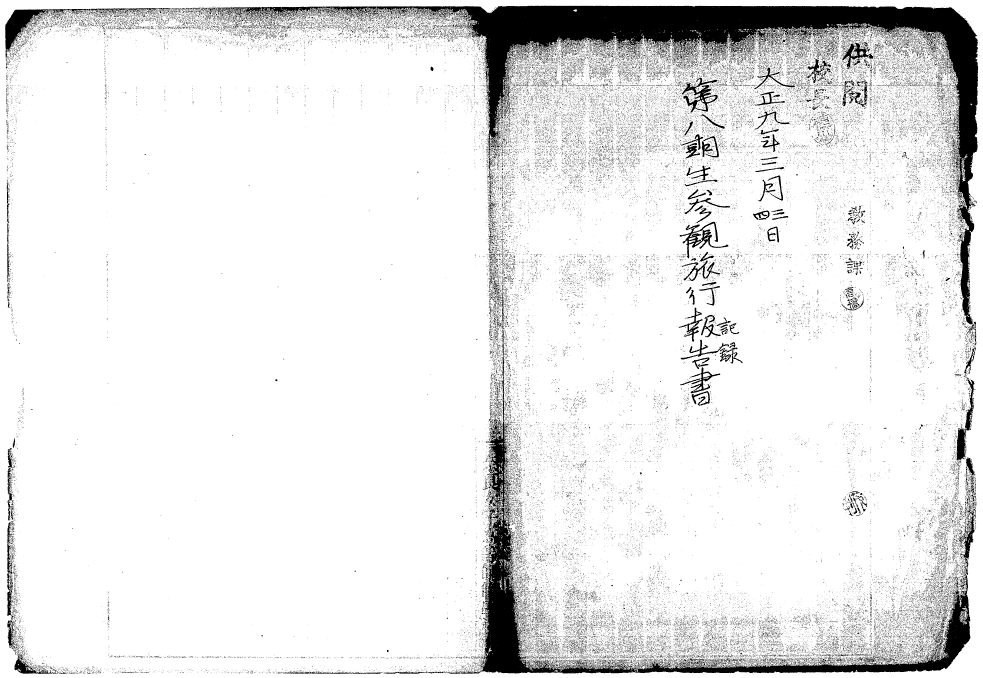 供閲
教務課
校長
大正九年三月
三四日
第八期生参観旅行報告書
記録